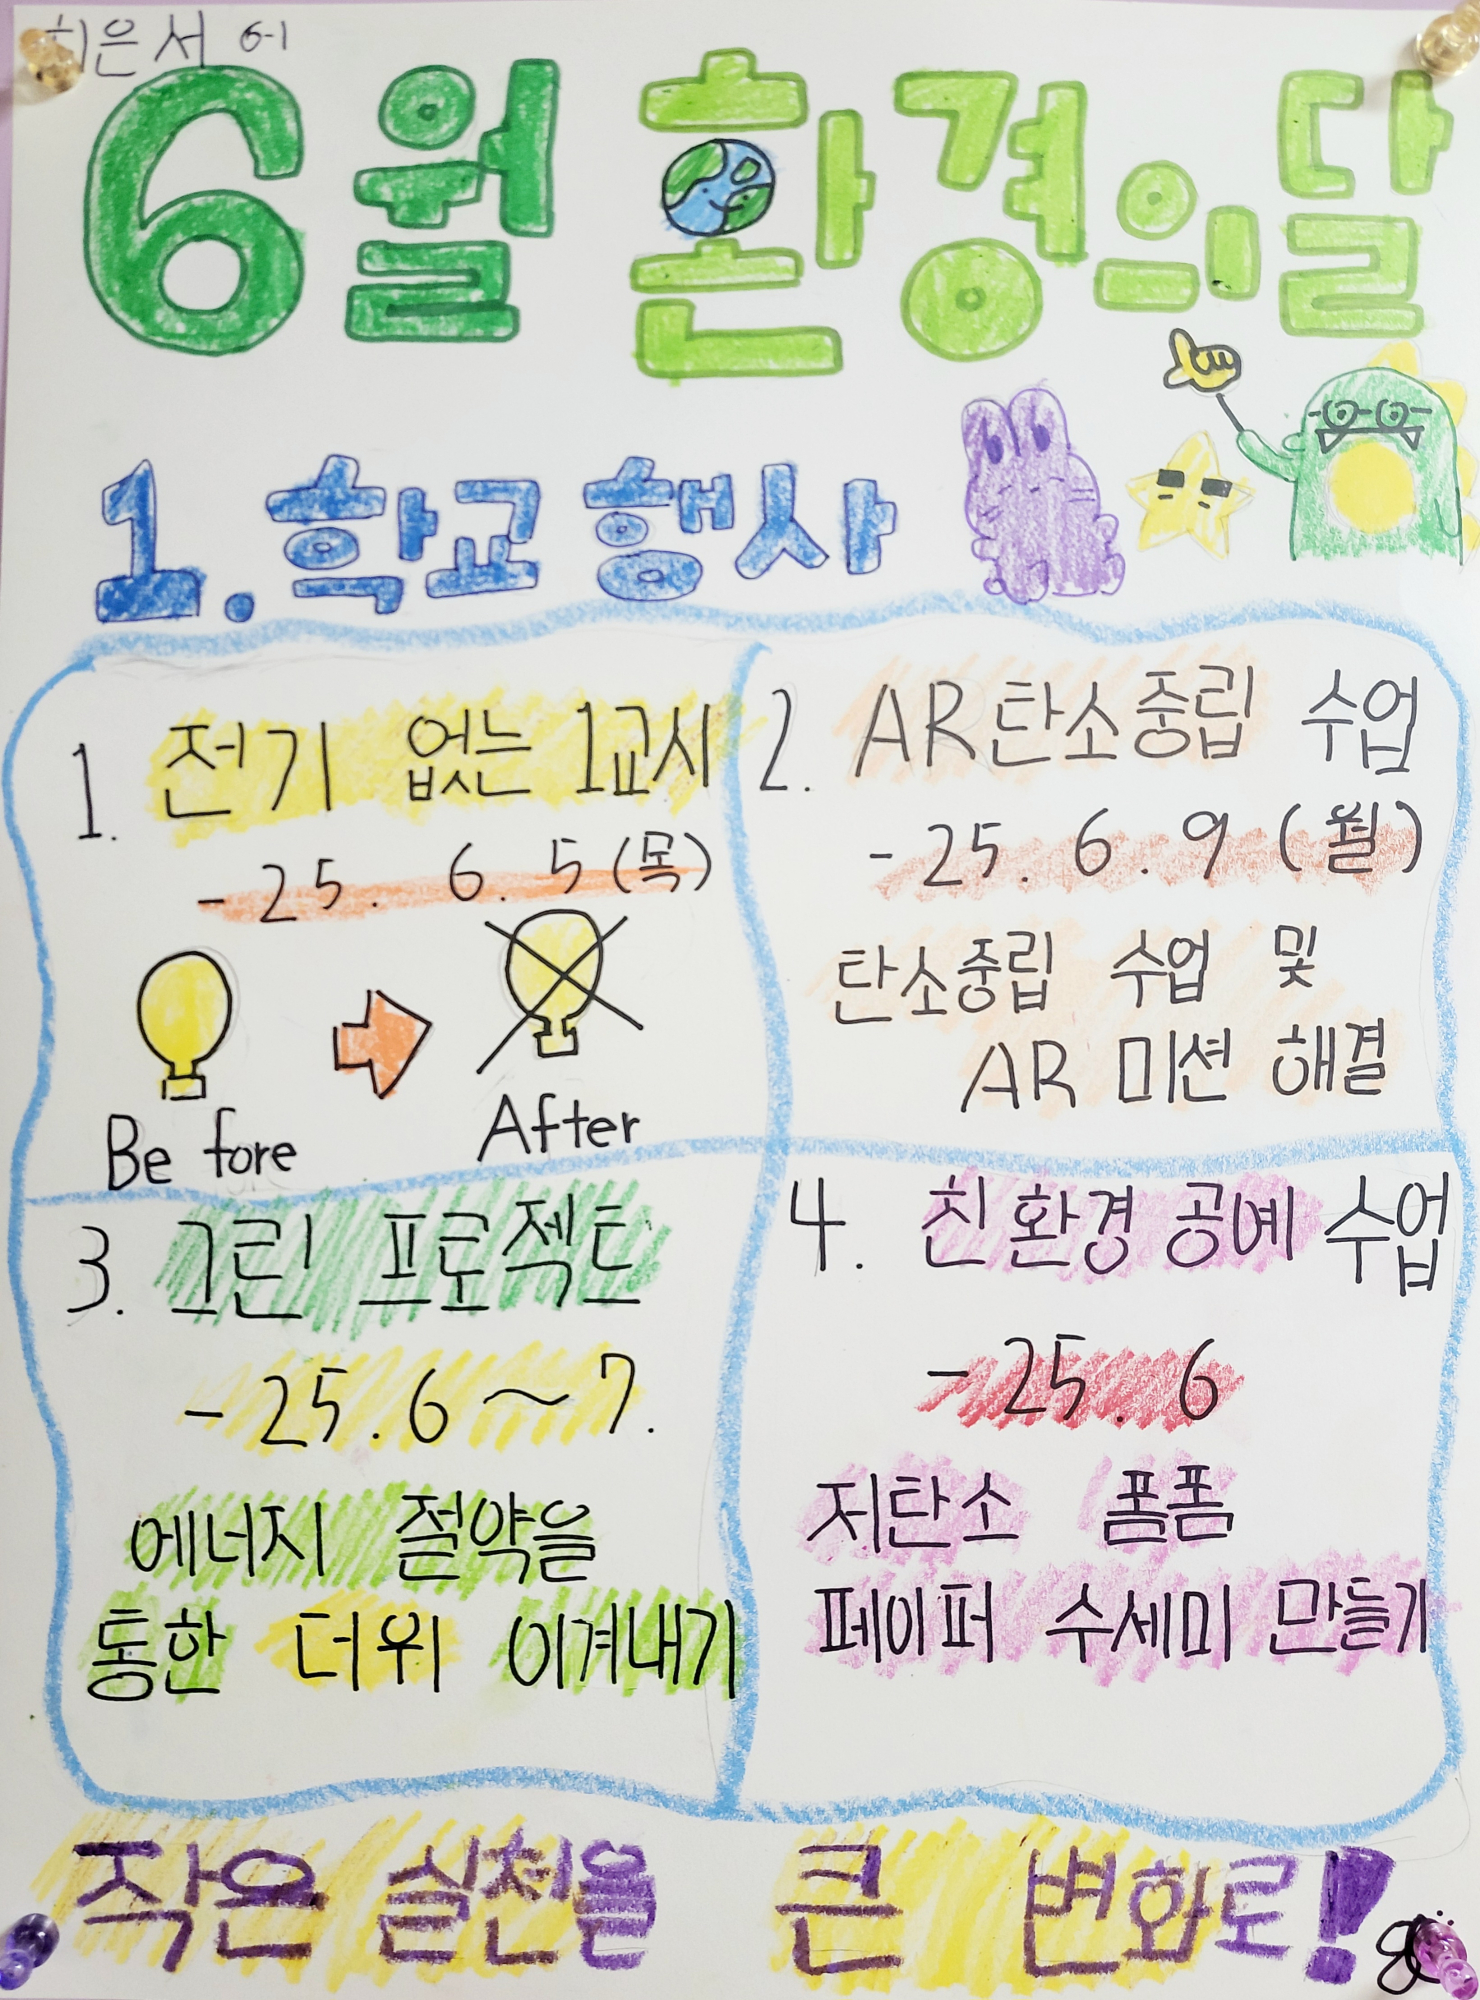 은서 6-1
6월 환경의 달
1. 학교 행사
1. 전기 없는 1교시
- 25. 6. 5 (목)
Before
After
2. AR탄소중립 수업
- 25. 6. 9 (월)
탄소중립 수업 및
AR 미션 해결
3. 그린 프로젝트
- 25. 6 ~ 7.
에너지 절약을
통한 더위 이겨내기
4. 친환경 공예 수업
- 25. 6
저탄소 폼폼
페이퍼 수세미 만들기
작은 실천을 큰 변화로!